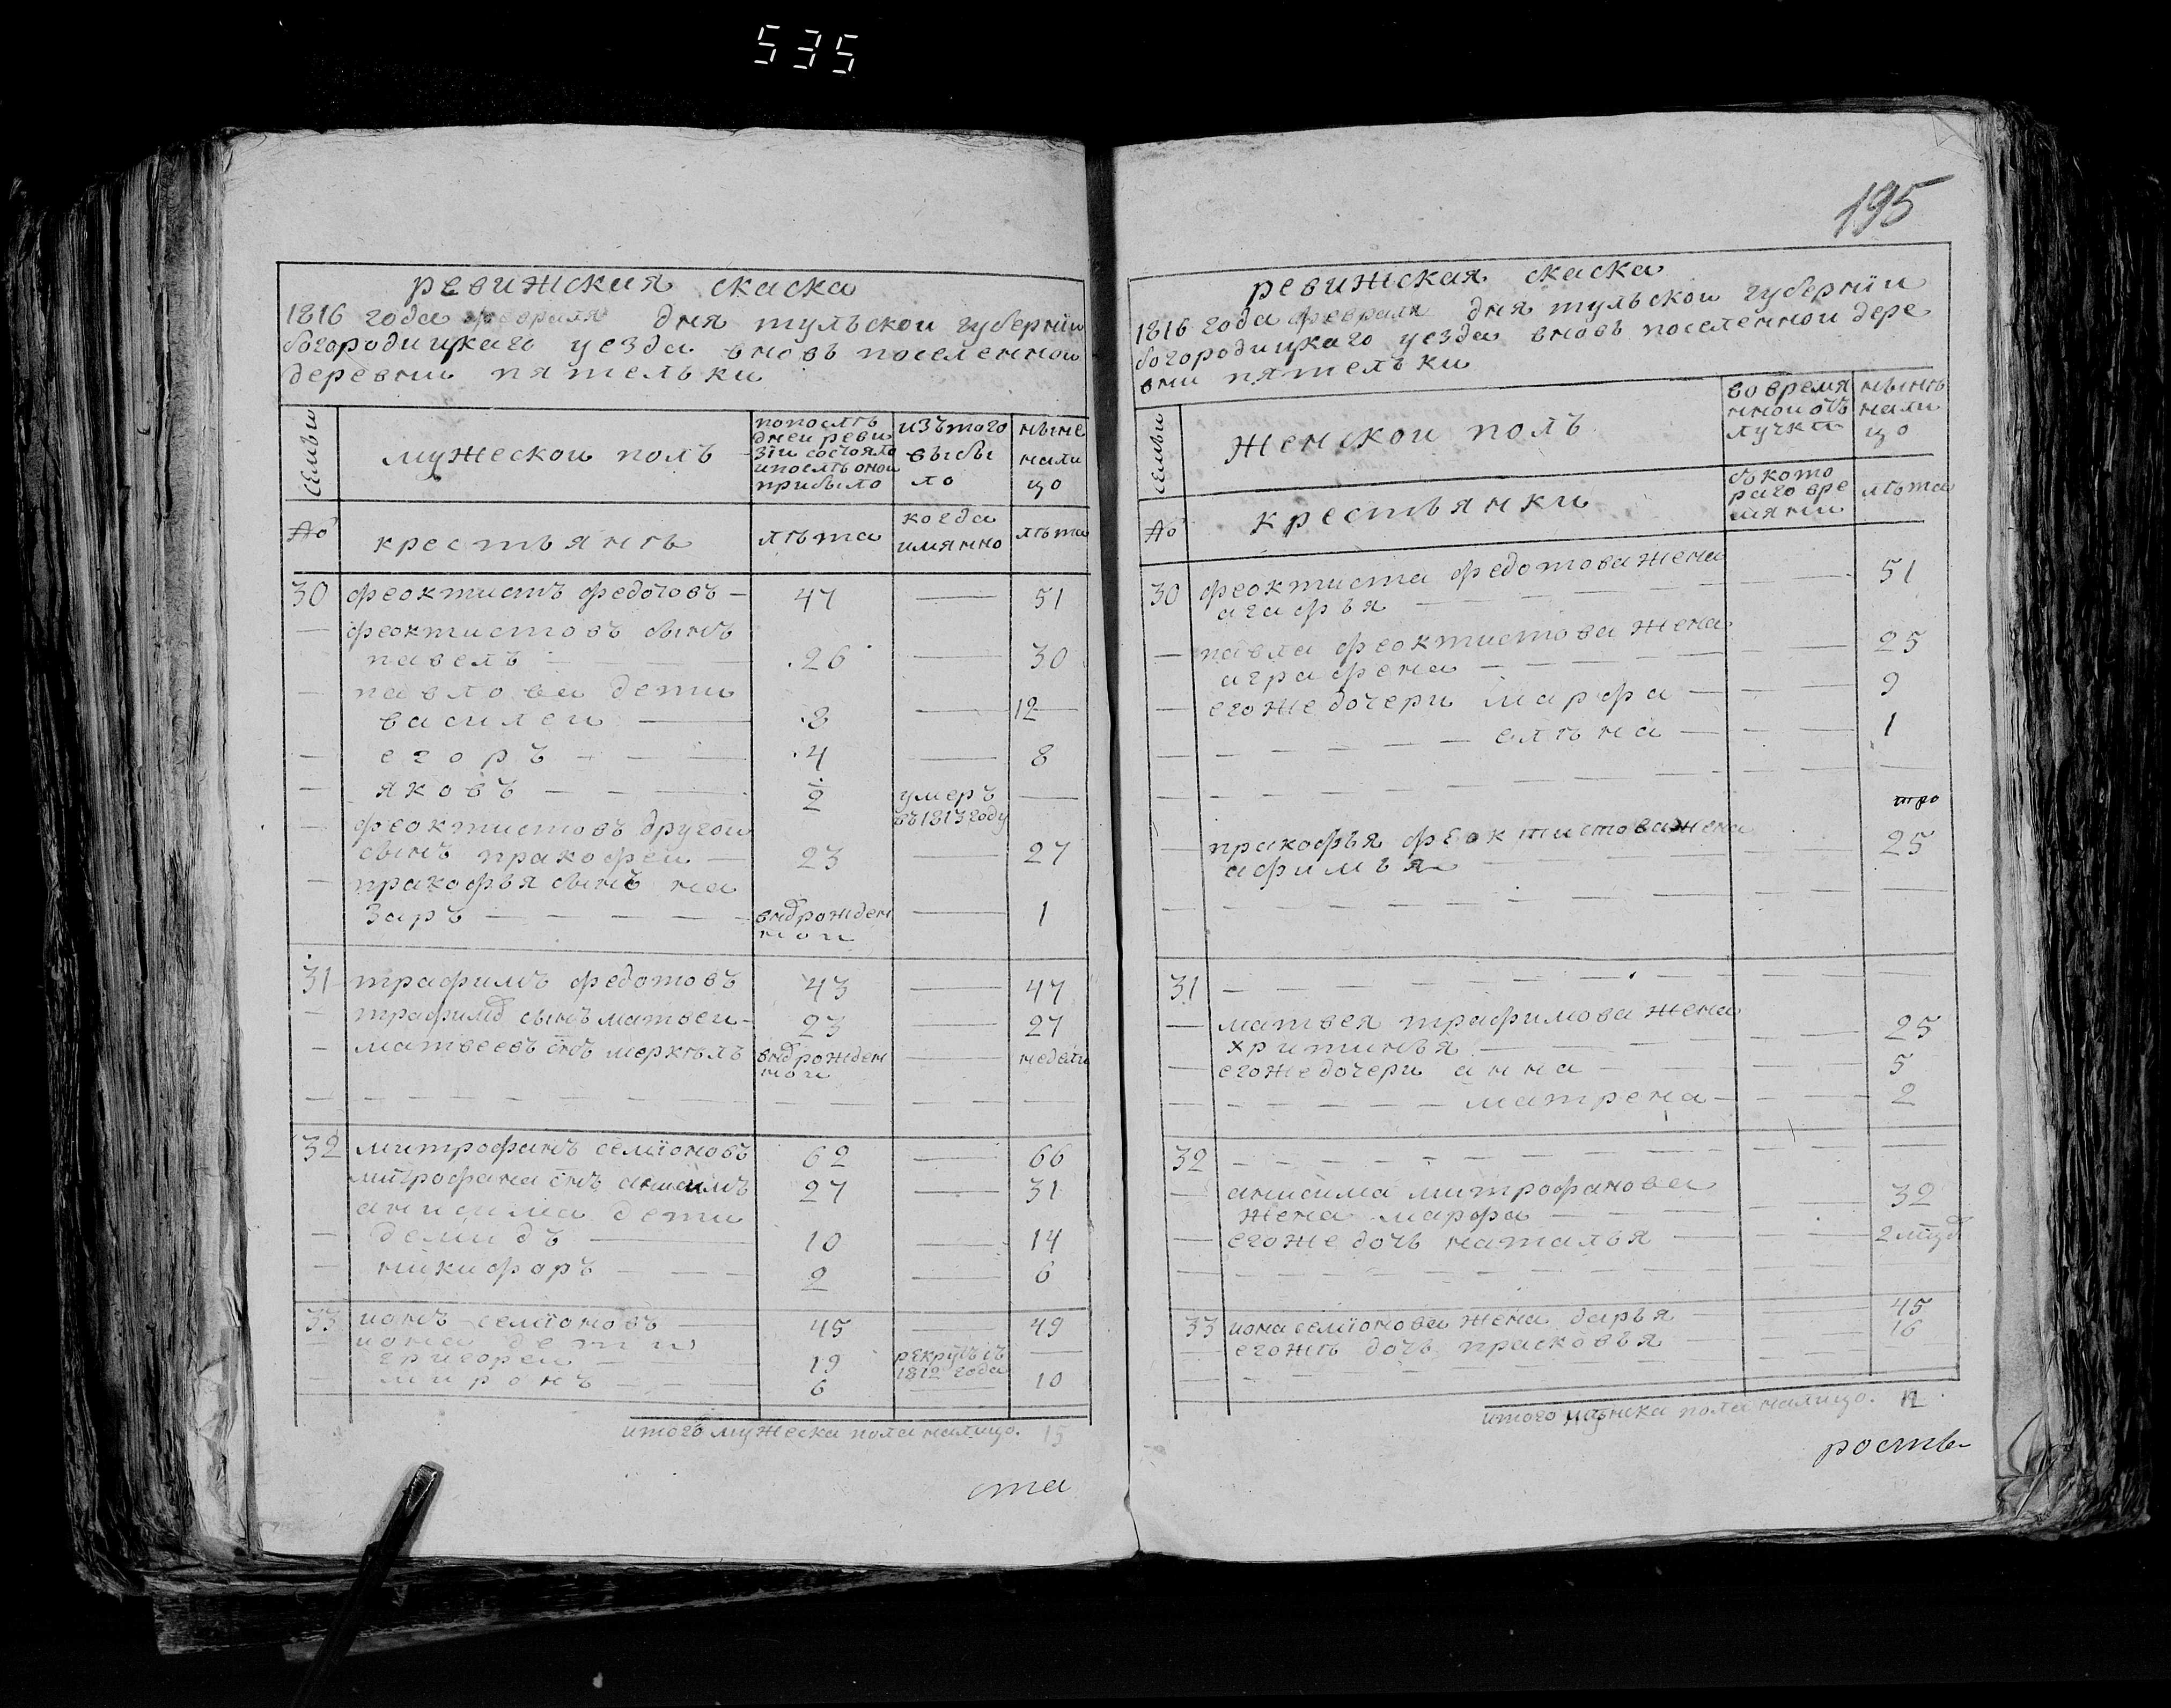 535
ревижския скаска
1816 года февраля дня тульскои губернїи
богородицкаго уезда вновь поселеннои
деревни пятельки
семьи
мужескои полъ
попослѣ
днеи реви
зіи состояло
ипослѣ онои
прибыло
изътого
выбы
ло
ныне
нали
цо
№
крестьянѣ
лѣта
когда
имянно
лѣта
30 феоктистъ федотовъ 47 51
феоктистовъ сынъ
павелъ 26 30
павлова дети
василеи 8 12
егоръ 4 8
яковъ 2 умеръ
въ1813году
феоктистовъ другои
сынъ пракофеи 23 27
пракофья сынъ на
заръ вновърожден 1
нои
31 трафимъ федотовъ 43 47
трафимовъ сынъ матвеи 23 27
матвеевъ снъ меркѣлъ вновърожден недели
нои
32 митрофанъ семїоновъ 62 66
митрофана снъ анисимъ 27 31
анисима дети
демидъ 10 14
никифоръ 2 6
33 ионъ семїоновъ 45 49
иона дети
григореи 19 рекрутъ съ
1812 года
миронъ 6 10
итого мужеска пола налицо. 15
ста
195
ревижская скаска
1816 года февраля дня тульскои губернїи
богородицкаго уезда вновь поселеннои дере
вни пятельки
семьи
женскои полъ
во время
ннои отъ
лучкѣ
нынѣ
нали
цо
№
крестьянки
съ кото
раго вре
мяни
лѣта
30 феоктиста федотова жена
агафья 51
павла феоктистова жена
аграфена 25
егоже дочери марфа 9
елѣна 1
тро
пракофья феоктистова жена
афимья 25
31
матвея трафимова жена
христинья 25
егоже дочери анна 5
матрена 2
32
анисима митрофанова
жена марфа 32
егоже дочь наталья
33 иона семїонова жена дарья 45
егожъ дочь прасковья 16
итого женска пола налицо. 12
рость